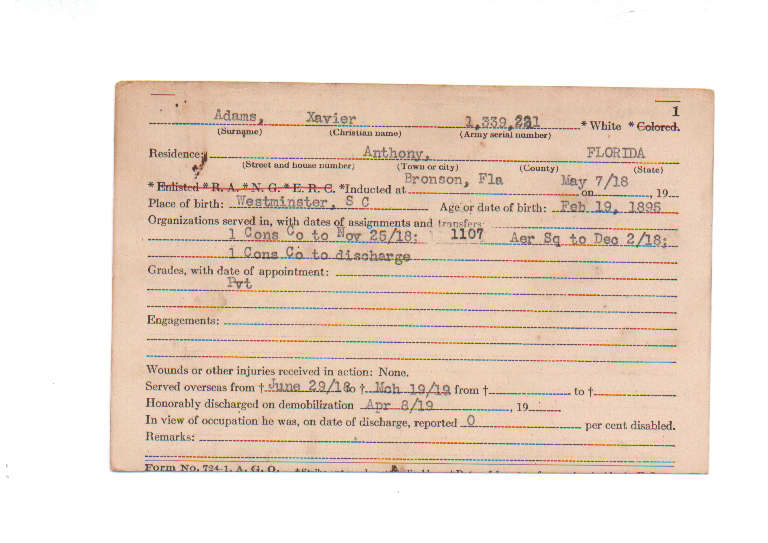 1
Adams, Xavier 1,339,221 * White * Colored.
(Surname) (Christian name) (Army serial number)
Residence: Anthony, FLORIDA
(Street and house number) (Town or city) (County) (State)
* Enlisted * R. A. * N. G. * E. R. C. *Inducted at Bronson, Fla on May 7/18, 19
Place of birth: Westminster, S C Age or date of birth: Feb 19, 1895
Organizations served in, with dates of assignments and transfers:
1 Cons Co to Nov 25/18; 1107 Aer Sq to Dec 2/18;
1 Cons Co to discharge
Grades, with date of appointment:
Pvt
Engagements:
Wounds or other injuries received in action: None.
Served overseas from † June 29/18 to † Mch 19/19 from † to †
Honorably discharged on demobilization Apr 8/19, 19
In view of occupation he was, on date of discharge, reported 0 per cent disabled.
Remarks:
Form No. 724-1, A. G. O.